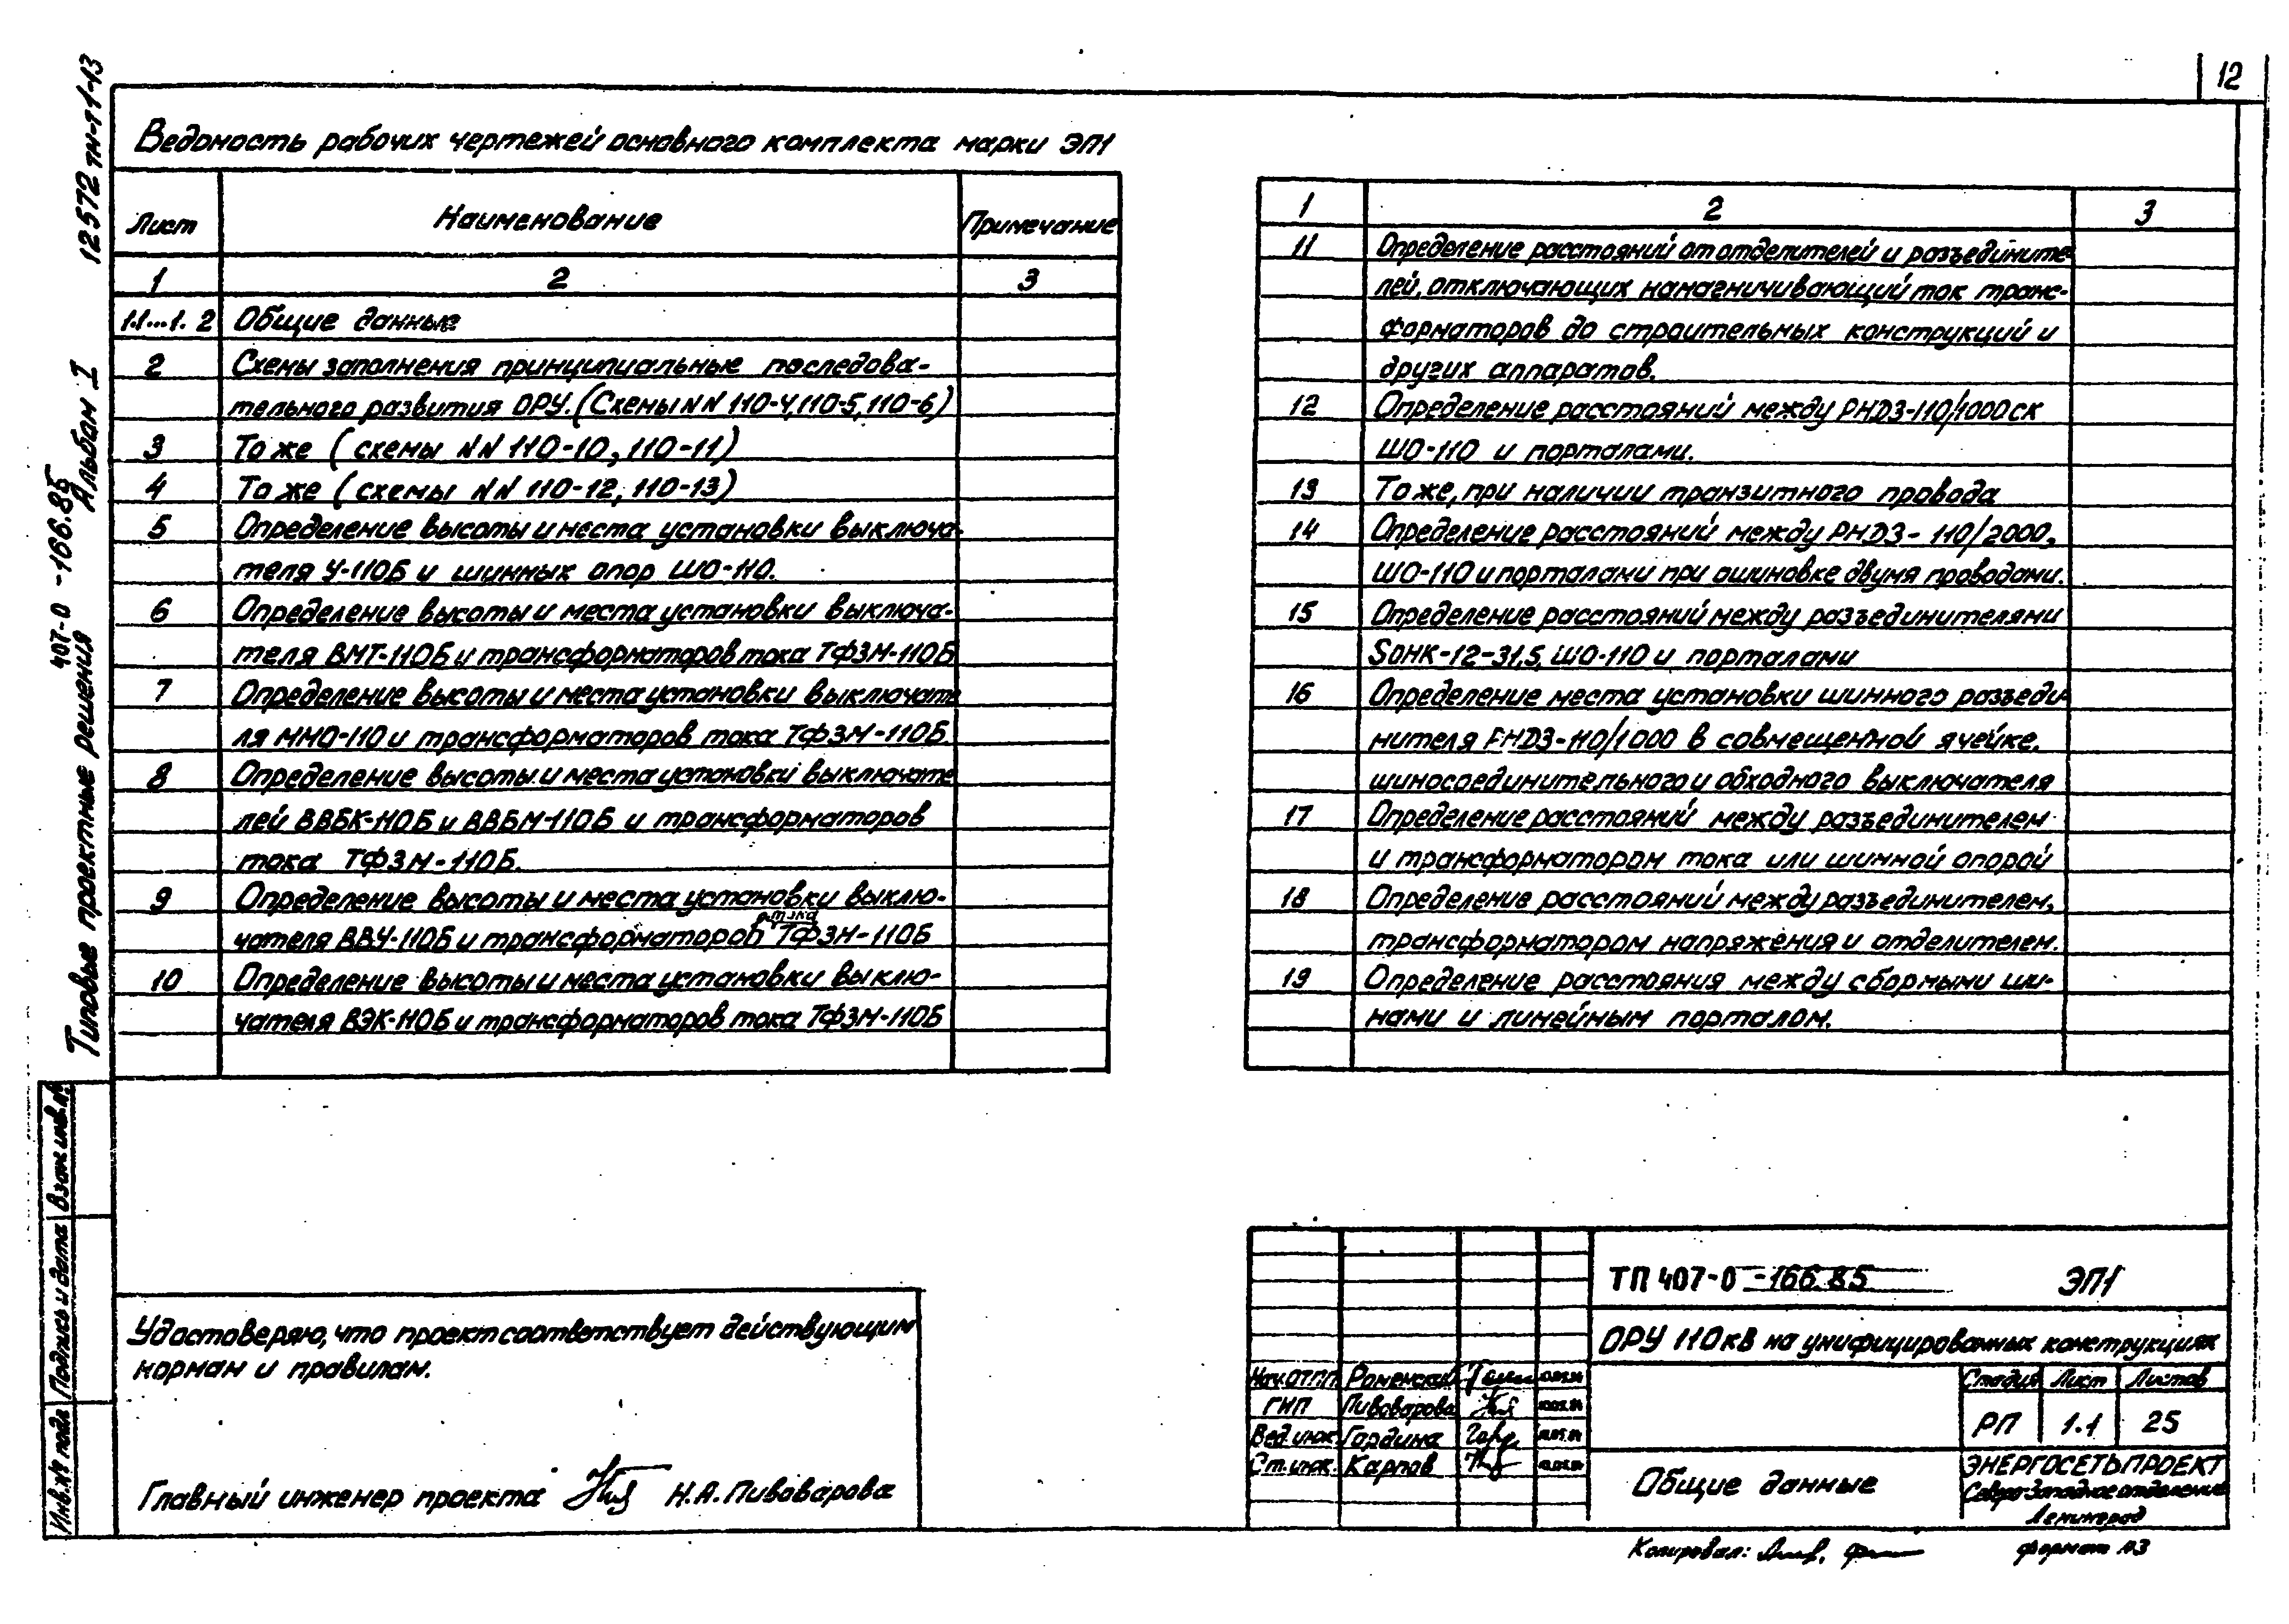 12
12572тм-т1-13
407-0-166.85
Альбом I
Типовые проектные решения
Ведомость рабочих чертежей основного комплекта марки ЭП1
Лист Наименование Примечание
1 2 3
1.1...1.2 Общие данные
2 Схемы заполнения принципиальные последова-
тельного развития ОРУ. (Схемы NN 110-4, 110-5, 110-6)
3 То же (схемы NN 110-10, 110-11)
4 То же (схемы NN 110-12, 110-13)
5 Определение высоты и места установки выключа-
теля У-110Б и шинных опор ШО-110.
6 Определение высоты и места установки выключа-
теля ВМТ-110Б и трансформаторов тока ТФЗМ-110Б
7 Определение высоты и места установки выключате
ля ММО-110 и трансформаторов тока ТФЗМ-110Б.
8 Определение высоты и места установки выключате
лей ВВБК-110Б и ВВБМ-110Б и трансформаторов
тока ТФЗМ-110Б.
9 Определение высоты и места установки выклю-
чателя ВВУ-110Б и трансформаторов тока ТФЗМ-110Б
10 Определение высоты и места установки выклю-
чателя ВЭК-110Б и трансформаторов тока ТФЗМ-110Б
1 2 3
11 Определение расстояний от отделителей и разъедините
лей, отключающих намагничивающий ток транс-
форматоров до строительных конструкций и
других аппаратов.
12 Определение расстояний между РНДЗ-110/1000 СК
ШО-110 и порталами.
13 То же, при наличии транзитного провода
14 Определение расстояний между РНДЗ-110/2000,
ШО-110 и порталами при ошиновке двумя проводами.
15 Определение расстояний между разъединителями
SOHK-12-31,5, ШО-110 и порталами
16 Определение места установки шинного разъеди-
нителя РНДЗ-110/1000 в совмещенной ячейке.
шиносоединительного и обходного выключателя
17 Определение расстояний между разъединителем
и трансформатором тока или шинной опорой
18 Определение расстояний между разъединителем,
трансформатором напряжения и отделителем.
19 Определение расстояния между сборными ши-
нами и линейным порталом.
Инв.№ подл Подпись и дата Взам инв.№
Удостоверяю, что проект соответствует действующим
нормам и правилам.
Главный инженер проекта Н.А.Пивоварова
ТП 407-0-166.85 ЭП1
ОРУ 110кВ на унифицированных конструкциях
Нач.ОТП Роменский
ГИП Пивоварова
Вед.инж. Гордина
Ст.инж. Карпов
Стадия Лист Листов
РП 1.1 25
Общие данные
ЭНЕРГОСЕТЬПРОЕКТ
Северо-Западное отделение
Ленинград
Копировал:
формат А3